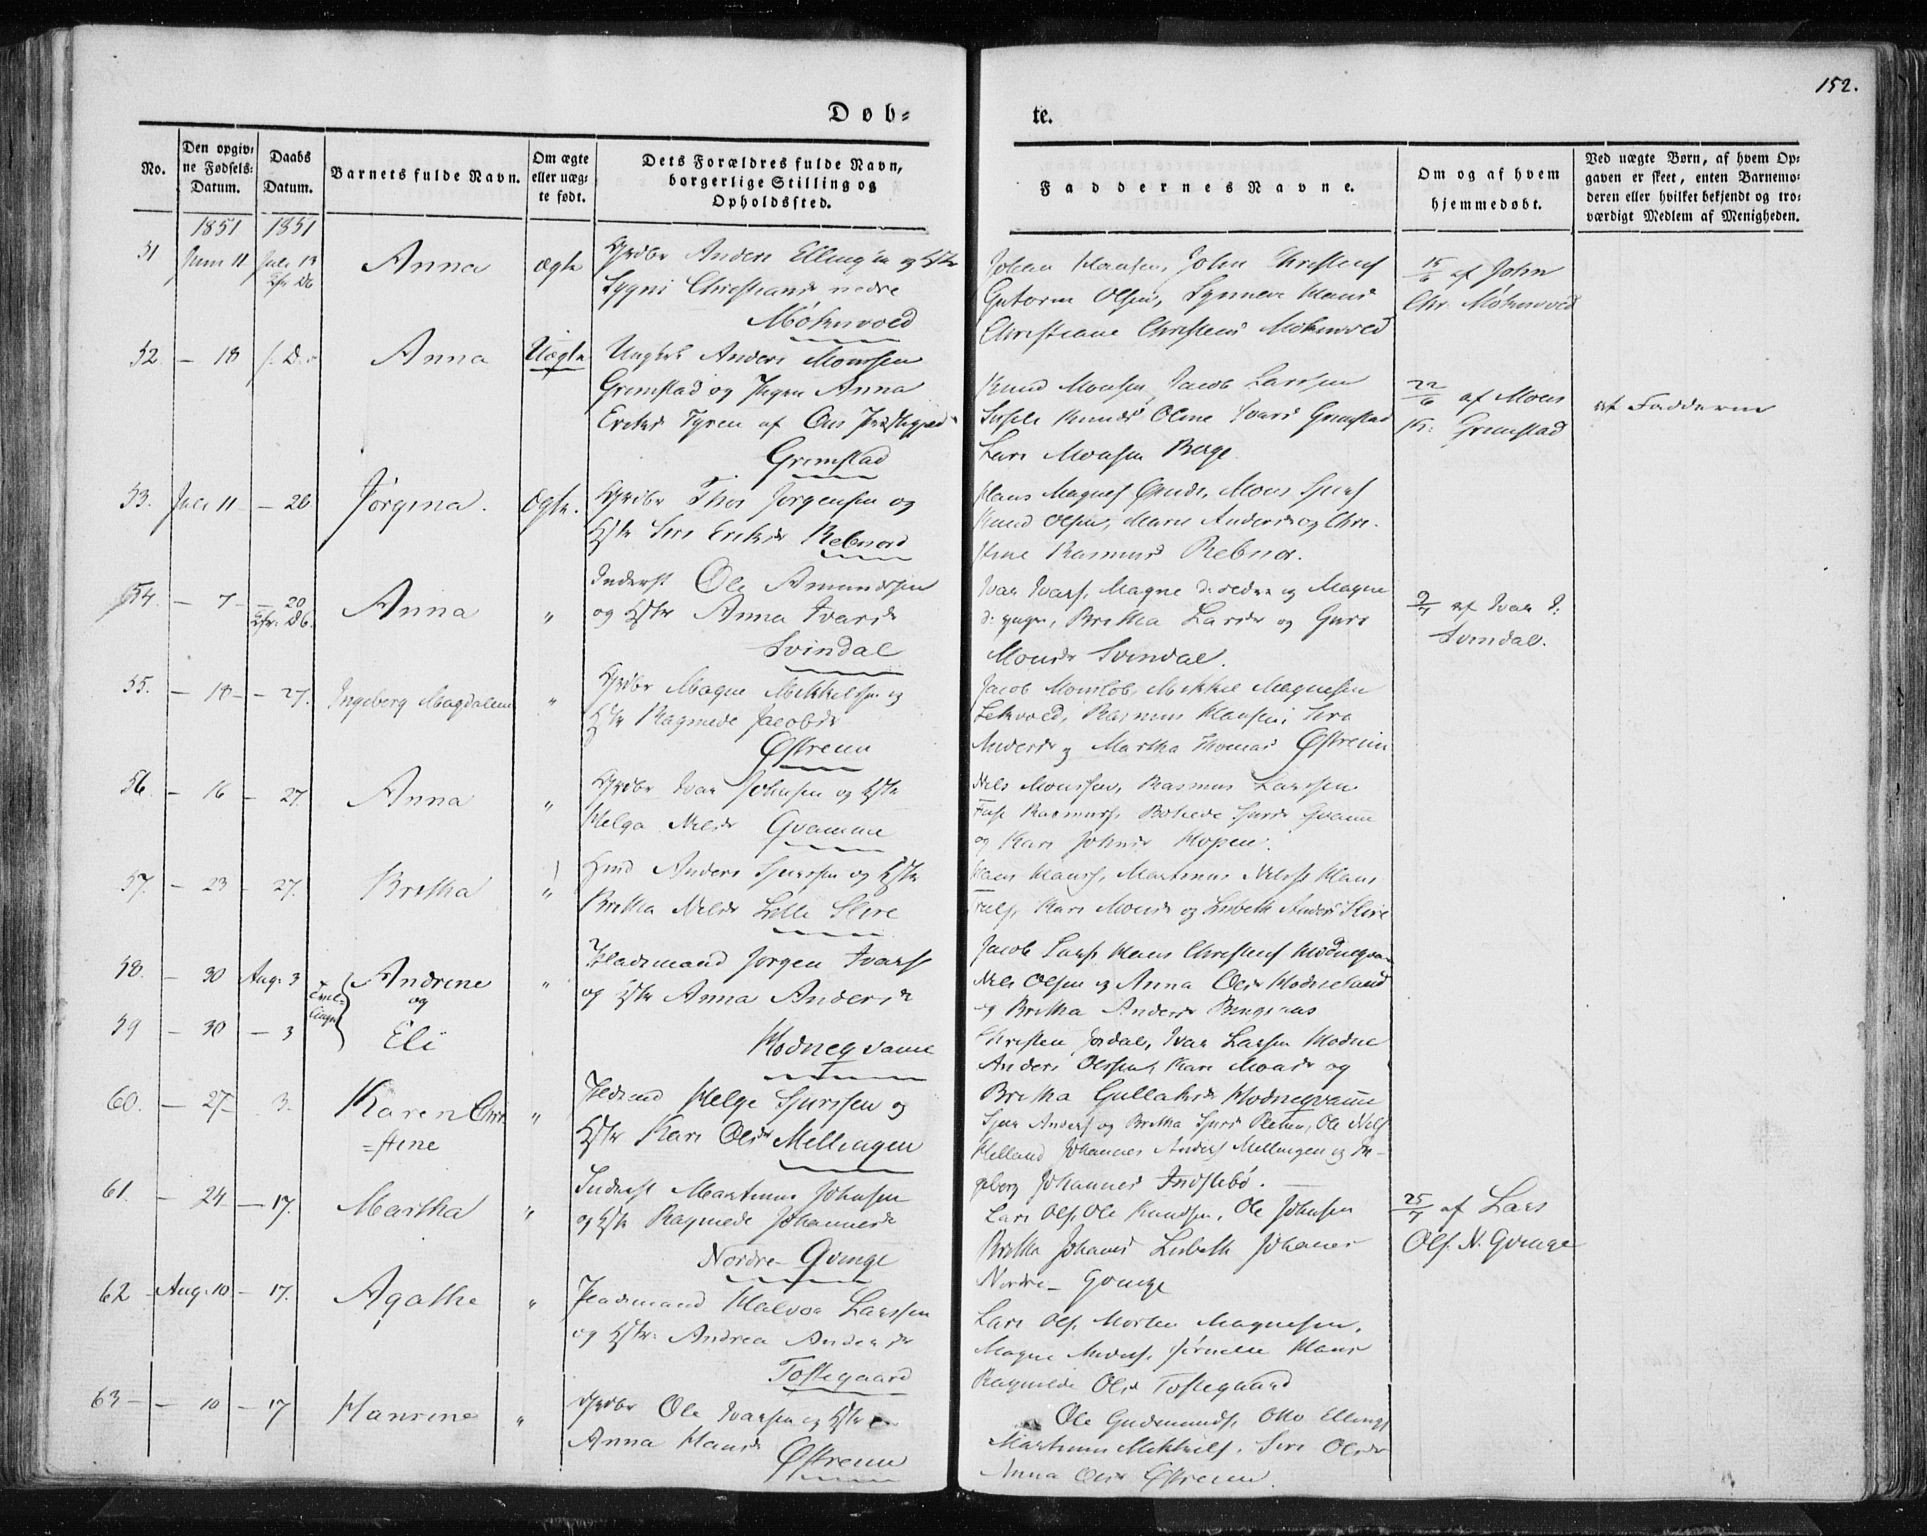 152.
Døb-
te.
No.
Den opgiv-
ne Fødsels-
Datum.
Daabs
Datum.
Barnets fulde Navn.
Om ægte
eller uæg-
te født.
Dets Forældres fulde Navn,
borgerlige Stilling og
Opholdssted.
Faddernes Navne.
Om og af hvem
hjemmedøbt.
Ved uægte Børn, af hvem Op-
gaven er skeet, enten Barnemo-
deren eller hvilket bekjendt og tro-
værdigt Medlem af Menigheden.
1851 1851
51 Juni 11 Juli 13 Anna ægte Anders og
Christiansd nedre
Møknvold
Johan Hansen, John Christens
Guttorm Olsen, Synneve Hans
Christiane Christens Møknvold
15/6 af John
Chr. Møknvold
52. - 18 Anna Uægte Ungkrl Anders Monssen
Grimstad og Pigen Anna
Eriksd Tyren af Præstegjæld
Grimstad
Knud Monsen, Jacob Larssen
Knuds Oline Ivars Grimstad
Lars Monsen Berge.
22/6 af Mons
Kn. Grimstad
af Fadderne
53. Juli 11 - 20 Jørgina. ægte. Gbr Thos Jørgensen og
Hstr Siri Eriksd Rebnord
Hans Magnes Mons Sjurs
Knud Olsen, Marie Andersd og Chri-
stine Rasmusd Rebnor.
54. - 7 - 20 Anna " Inderst Ole Amundssen
og Hstr Anna Ivarsd
Svindal
Ivar Ivars, Magne d: ældre og Magne
d: yngre, Britha Larsd og Guri
Monsd Svindal.
9/7 af Ivar I:
Svindal.
55. - 18 - - 27. Ingeborg Magdalene " Gbr Magne Mikkelsen og
Hstr Ragnilde Jacobsd
Østreim
Jacob Mikkel Magnesen
Lekvold, Rasmus Hansen, Siri
Andersd og Martha Thomasd Østreim
56. - 16 - 27. Anna " Gbr Ivar Johnsen og Hstr
Helga Nilsd Qvamme
Nils Monssen, Rasmus Larssen
Rasmuss. Bothilde Sjursd Qvamme
og Kari Johnsd Kopen.
57. - 23 - 27. Britha " Anders Sjurssen og Hstr
Britha Nilsd Lille Slire
Hans Hanss, Martinus Nilss Hans
Kari Monsd og Lisbeth Andersd Slire
58. - 30 Aug. 3 Andrine " Pladsmand Jørgen Ivars
og
og Hstr Anna Andersd
Tvil-
linger
59 - 30 - 3 Eli
Hodneqvame
Jacob Larss Hans Christens Hodneqva
Nils Olsen og Anna Olsd Hodneland
og Britha Andersd
Christen Jordal, Ivar Larsen Hodne
Anders Olssen, Kari Monsd og
Britha Gullaksd Hodneqvame
60. - 27 - 3. Karen Chri " Helge Sjurssen og
=stine Hstr Kari Olsd Mellingen
Sjur Anders og Britha Sjursd Ole Nils
Helland Johannes Anders Mellingen og In-
geborg Johannes Indstebø.
61. - 24 - 17. Martha " Inderst Martinus Johnsen
og Hstr Ragnilde Johannesd
Nordre Qvinge
Lars Ols. Ole Knudsen, Ole Johnsen
Britha Johans Lisbeth Johanes
Nordre Qvinge
25/7 af Lars
Ols. N. Qvinge
62 - Aug. 10 - 17. Agathe " Pladsmand Halvor Larssen
og Hstr. Andrea Andersd
Toftegaard
Lars Ols. Morten Magnesen.
Magne Anders. Hans
Ragnilde Olsd Toftegaard
63 - - 10 - 17 Hansine " Gbr Ole Ivarsen og Hstr
Anna Hansd
Østreim
Ole Gudmunds. Otto Ellings
Martinus Mikkels. Siri Olsd
Anna Olsd Østreim